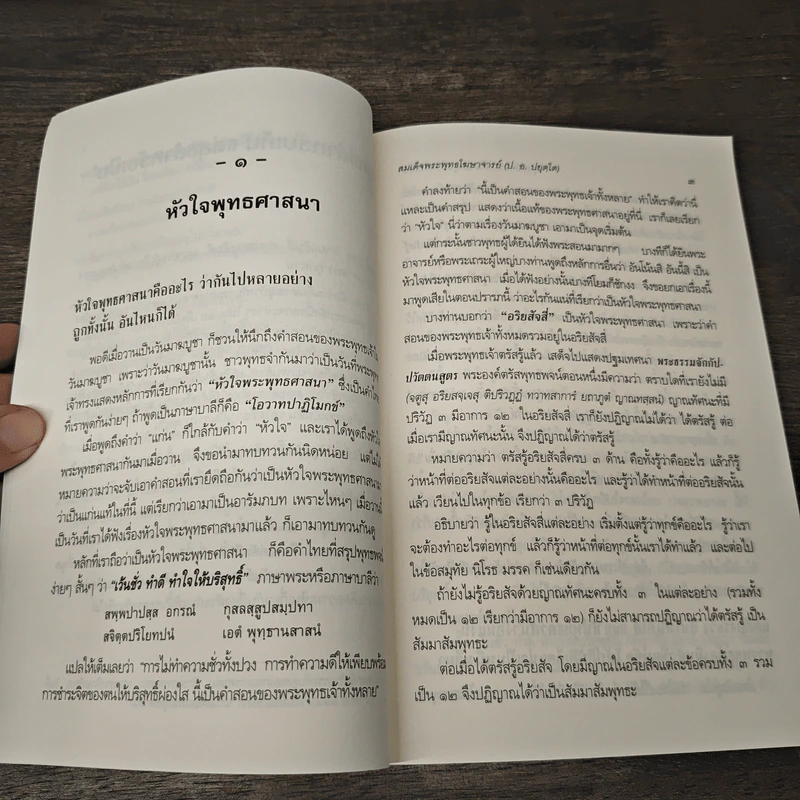 – ๑ –
หัวใจพุทธศาสนา
หัวใจพุทธศาสนาคืออะไร ว่ากันไปหลายอย่าง
ถูกทั้งนั้น อันไหนก็ได้
พอดีเมื่อวานเป็นวันมาฆบูชา ก็ชวนให้นึกถึงคำสอนของพระพุทธเจ้าใน
วันมาฆบูชา เพราะว่าวันมาฆบูชานั้น ชาวพุทธจำกันมาว่าเป็นวันที่พระพุทธ
เจ้าทรงแสดงหลักการที่เรียกกันว่า “หัวใจพระพุทธศาสนา” ซึ่งเป็นคำไทย
ที่เราพูดกันง่ายๆ ถ้าพูดเป็นภาษาบาลีก็คือ “โอวาทปาฏิโมกข์”
เมื่อพูดถึงคำว่า “แก่น” ก็ใกล้กับคำว่า “หัวใจ” และเราได้พูดถึงหัวใจ
พระพุทธศาสนากันมาเมื่อวาน จึงขอนำมาทบทวนกันนิดหน่อย แต่ไม่ได้
หมายความว่าจะจับเอาคำสอนที่เรายึดถือกันว่าเป็นหัวใจพระพุทธศาสนา
ว่าเป็นแก่นแท้ในที่นี้ แต่เรียกว่าเอามาเป็นอารัมภบท เพราะไหนๆ เมื่อวานนี้
เป็นวันที่เราได้ฟังเรื่องหัวใจพระพุทธศาสนามาแล้ว ก็เอามาทบทวนกันดู
หลักที่เราถือว่าเป็นหัวใจพระพุทธศาสนา ก็คือคำไทยที่สรุปพุทธพจน์
ง่ายๆ สั้นๆ ว่า “เว้นชั่ว ทำดี ทำใจให้บริสุทธิ์” ภาษาพระหรือภาษาบาลีว่า
สพฺพปาปสฺส อกรณํ กุสลสฺสูปสมฺปทา
สจิตฺตปริโยทปนํ เอตํ พุทฺธานสาสนํ
แปลให้เต็มเลยว่า “การไม่ทำความชั่วทั้งปวง การทำความดีให้เพียบพร้อม
การชำระจิตของตนให้บริสุทธิ์ผ่องใส นี้เป็นคำสอนของพระพุทธเจ้าทั้งหลาย”
สมเด็จพระพุทธโฆษาจารย์ (ป. อ. ปยุตฺโต)
๓
คำลงท้ายว่า “นี้เป็นคำสอนของพระพุทธเจ้าทั้งหลาย” ทำให้เราคิดว่านี่
แหละเป็นคำสรุป แสดงว่าเนื้อแท้ของพระพุทธศาสนาอยู่ที่นี่ เราก็เลยเรียก
ว่า “หัวใจ” นี่ว่าตามเรื่องวันมาฆบูชา เอามาเป็นจุดเริ่มต้น
แต่กระนั้นชาวพุทธผู้ได้ยินได้ฟังพระสอนมามากๆ บางทีก็ได้ยินพระ
อาจารย์หรือพระเถระผู้ใหญ่บางท่านพูดถึงหลักการอื่นว่า อันโน้นสิ อันนี้สิ เป็น
หัวใจพระพุทธศาสนา เมื่อได้ฟังอย่างนั้นบางทีโยมก็ชักงง จึงขอยกเอาเรื่องนี้
มาพูดเสียในตอนปรารภนี้ ว่าอะไรกันแน่ที่เรียกว่าเป็นหัวใจพระพุทธศาสนา
บางท่านบอกว่า “อริยสัจสี่” เป็นหัวใจพระพุทธศาสนา เพราะว่าคำ
สอนของพระพุทธเจ้าทั้งหมดรวมอยู่ในอริยสัจสี่
เมื่อพระพุทธเจ้าตรัสรู้แล้ว เสด็จไปแสดงปฐมเทศนา พระธรรมจักกัป-
ปวัตตนสูตร พระองค์ตรัสพุทธพจน์ตอนหนึ่งมีความว่า ตราบใดที่เรายังไม่มี
(จตูสุ อริยสจฺเจสุ ติปริวฏฺฏํ ทฺวาทสาการํ ยถาภูตํ ญาณทสฺสนํ) ญาณทัศนะที่มี
ปริวัฏ ๓ มีอาการ ๑๒ ในอริยสัจสี่ เราก็ยังปฏิญาณไม่ได้ว่า ได้ตรัสรู้ ต่อ
เมื่อเรามีญาณทัศนะนั้น จึงปฏิญาณได้ว่าตรัสรู้
หมายความว่า ตรัสรู้อริยสัจสี่ครบ ๓ ด้าน คือทั้งรู้ว่าคืออะไร แล้วก็รู้
ว่าหน้าที่ต่ออริยสัจแต่ละอย่างนั้นคืออะไร และรู้ว่าได้ทำหน้าที่ต่ออริยสัจนั้น
แล้ว เวียนไปในทุกข้อ เรียกว่า ๓ ปริวัฏ
อธิบายว่า รู้ในอริยสัจสี่แต่ละอย่าง เริ่มตั้งแต่รู้ว่าทุกข์คืออะไร รู้ว่าเรา
จะต้องทำอะไรต่อทุกข์ แล้วก็รู้ว่าหน้าที่ต่อทุกข์นั้นเราได้ทำแล้ว และต่อไป
ในข้อสมุทัย นิโรธ มรรค ก็เช่นเดียวกัน
ถ้ายังไม่รู้อริยสัจด้วยญาณทัศนะครบทั้ง ๓ ในแต่ละอย่าง (รวมทั้ง
หมดเป็น ๑๒ เรียกว่ามีอาการ ๑๒) ก็ยังไม่สามารถปฏิญาณว่าได้ตรัสรู้ เป็น
สัมมาสัมพุทธะ
ต่อเมื่อได้ตรัสรู้อริยสัจ โดยมีญาณในอริยสัจแต่ละข้อครบทั้ง ๓ รวม
เป็น ๑๒ จึงปฏิญาณได้ว่าเป็นสัมมาสัมพุทธะ